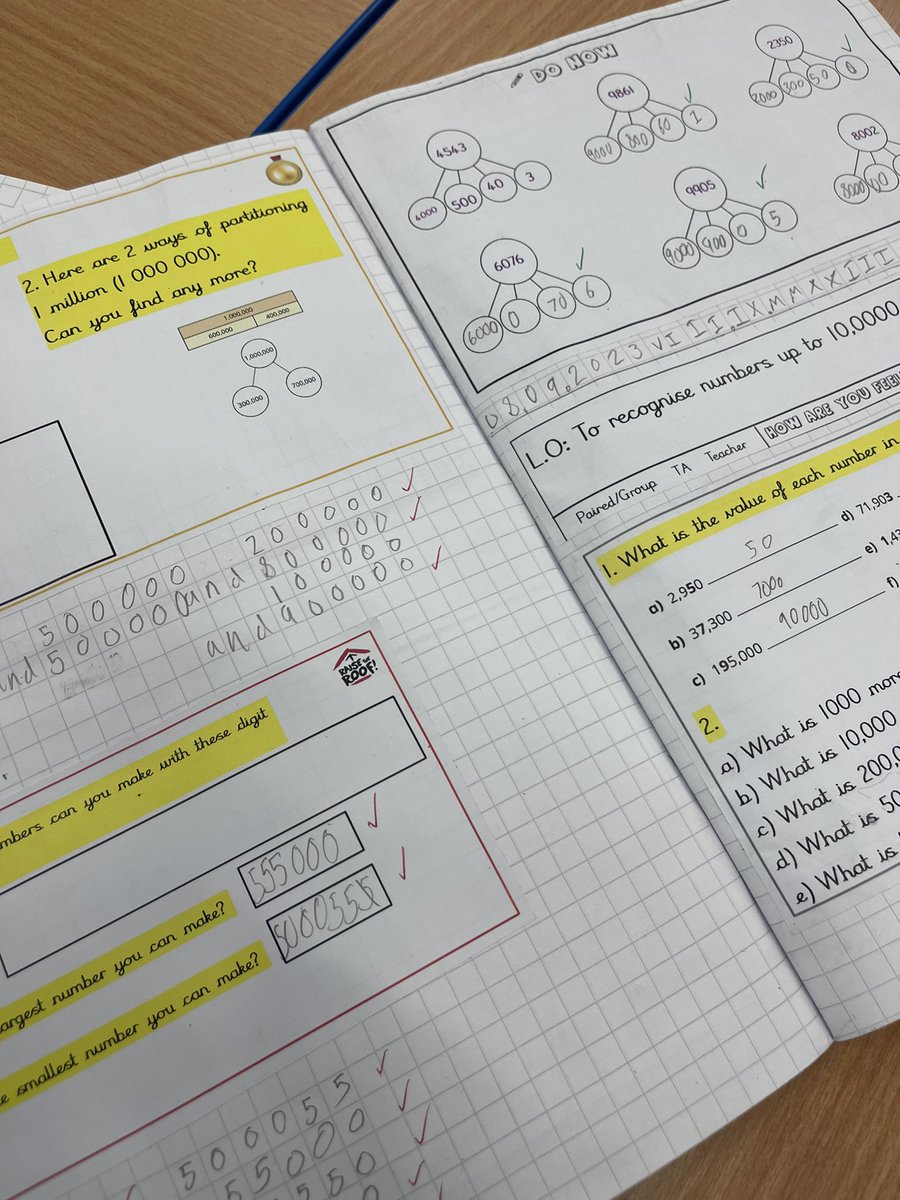 2. Here are 2 ways of partitioning
1 million (1 000 000).
Can you find any more?
1,000,000
600,000 400,000
1,000,000
300,000 700,000
500000 200000
and 500000 and 800000
100000
and 900000
RAISE THE
ROOF!
mbers can you make with these digit
argest number you can make?
555000
e smallest number you can make?
500055
55000
550
DO NOW
4543
4000 500 40 3
9861
9000 800 60 1
2350
2000 300 50 0
6076
6000 0 70 6
9905
9000 900 0 5
8002
8000
08.09.2023 VIII.IX.MMXXIII
L.O: To recognise numbers up to 10,0000
Paired/Group TA Teacher HOW ARE YOU FEEL
1. What is the value of each number in
a) 2,950 50 d) 71,903
b) 37,300 7000 e) 1,43
c) 195,000 90000 f)
2.
a) What is 1000 more
b) What is 10,000
c) What is 200,0
d) What is 50
e) What is